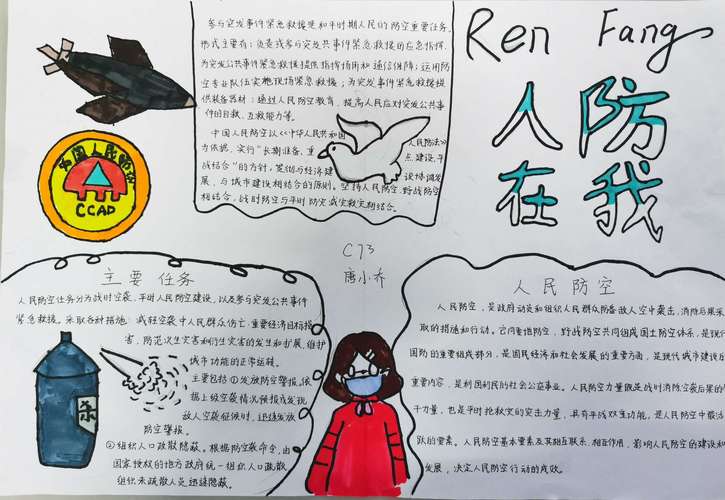 参与突发事件紧急救援是和平时期人民的防空重要任务。
形式主要有：负责或参与突发共事件紧急救援的应急指挥，
为突发公共事件紧急救援提供指挥信用和通信保障；运用防
空专业队伍实施现场紧急救援；为突发事件紧急救援提
供装备器材；通过人民防空教育，提高人民应对突发公共事
件的自救、互救能力等。
中国人民防空以《中华人民共和国
人民防空法》
为依据，实行“长期准备、重
点建设、平
战结合”的方针，贯彻与经济建
设协调发
展、与城市建设相结合的原则。坚持人民防空、野战防空
相结合，战时防空与平时防灾减灾救灾相结合。
Ren Fang
人防
在我
中国人民防空
CCAD
C73
唐小乔
主要任务
人民防空任务分为战时空袭，平时人民防空建设，以及参与突发公共事件
紧急救援。采取各种措施，减轻空袭中人民群众伤亡，重要经济目标损
害，防范次生灾害和衍生灾害的发生和扩展，维护
城市功能的正常运转。
主要包括①发放防空警报。依
据上级空袭情况预报或发现
敌人空袭征候时，迅速发放
防空警报。
②组织人口疏散隐蔽。根据防空袭命令，由
国家授权的地方政府统一组织人口疏散，
组织未疏散人员迅速隐蔽。
杀
人民防空
人民防空，是政府动员和组织人民群众防备敌人空中袭击，消除后果采
取的措施和行动。它同要地防空，野战防空共同组成国土防空体系，是现代
国防的重要组成部分，是国民经济和社会发展的重要方面，是现代城市建设的
重要内容，是利国利民的社会公益事业。人民防空力量既是战时消除空袭后果的
干力量，也是平时抢救灾的突击力量，具有平战双重功能，是人民防空中最活
跃的要素。人民防空基本要素及其相互联系、相互作用，影响人民防空的建设和
发展，决定人民防空行动的成效。